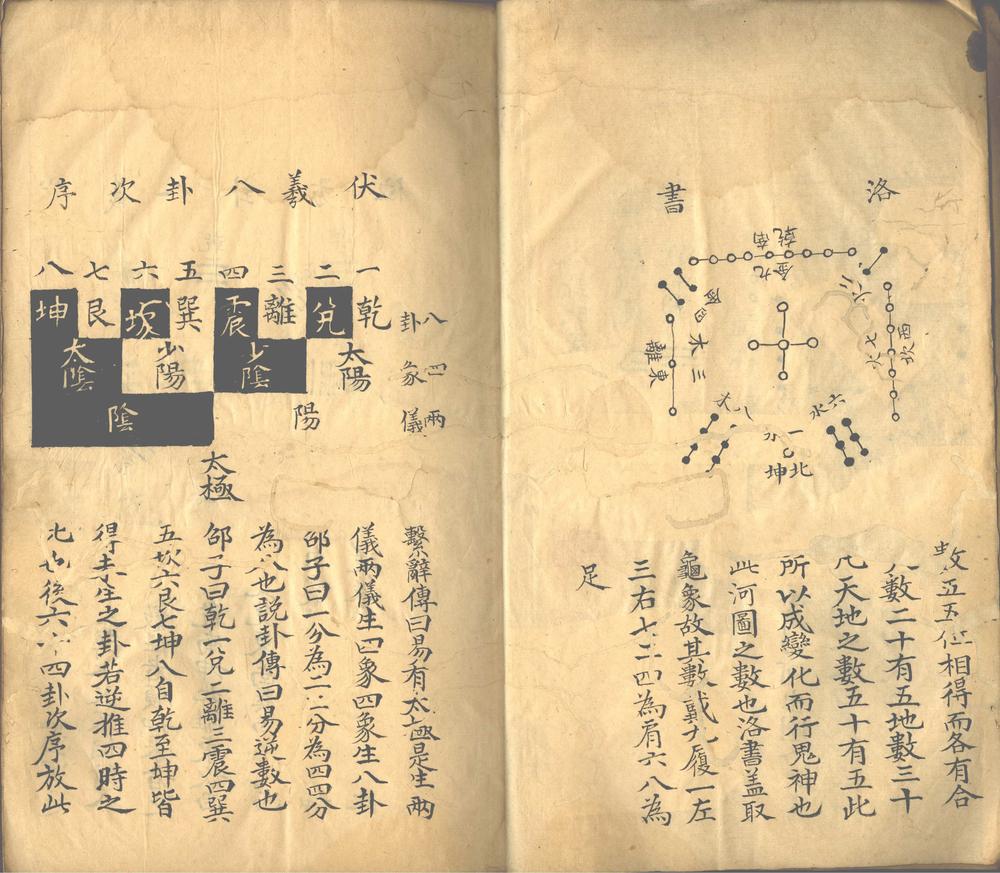 洛書
乾南
金九
四
離東
木三
坎西
火七
二火
八木
六水
一水
坤北
五五位相得而各有合
數二十有五地數三十
凡天地之數五十有五此
所以成變化而行鬼神也
此河圖之數也洛書盖取
龜象故其數戴九履一左
三右七二四為肩六八為
足
伏羲八卦次序
一二三四五六七八
乾兌離震巽坎艮坤
八卦
太陽少陰少陽太陰
四象
陽陰
兩儀
太極
繫辭傳曰易有太極是生兩
儀兩儀生四象四象生八卦
邵子曰一分為二二分為四四分
為八也説卦傳曰易逆數也
邵子曰乾一兌二離三震四巽
五坎六艮七坤八自乾至坤皆
得未生之卦若逆推四時之
比也後六十四卦次序放此